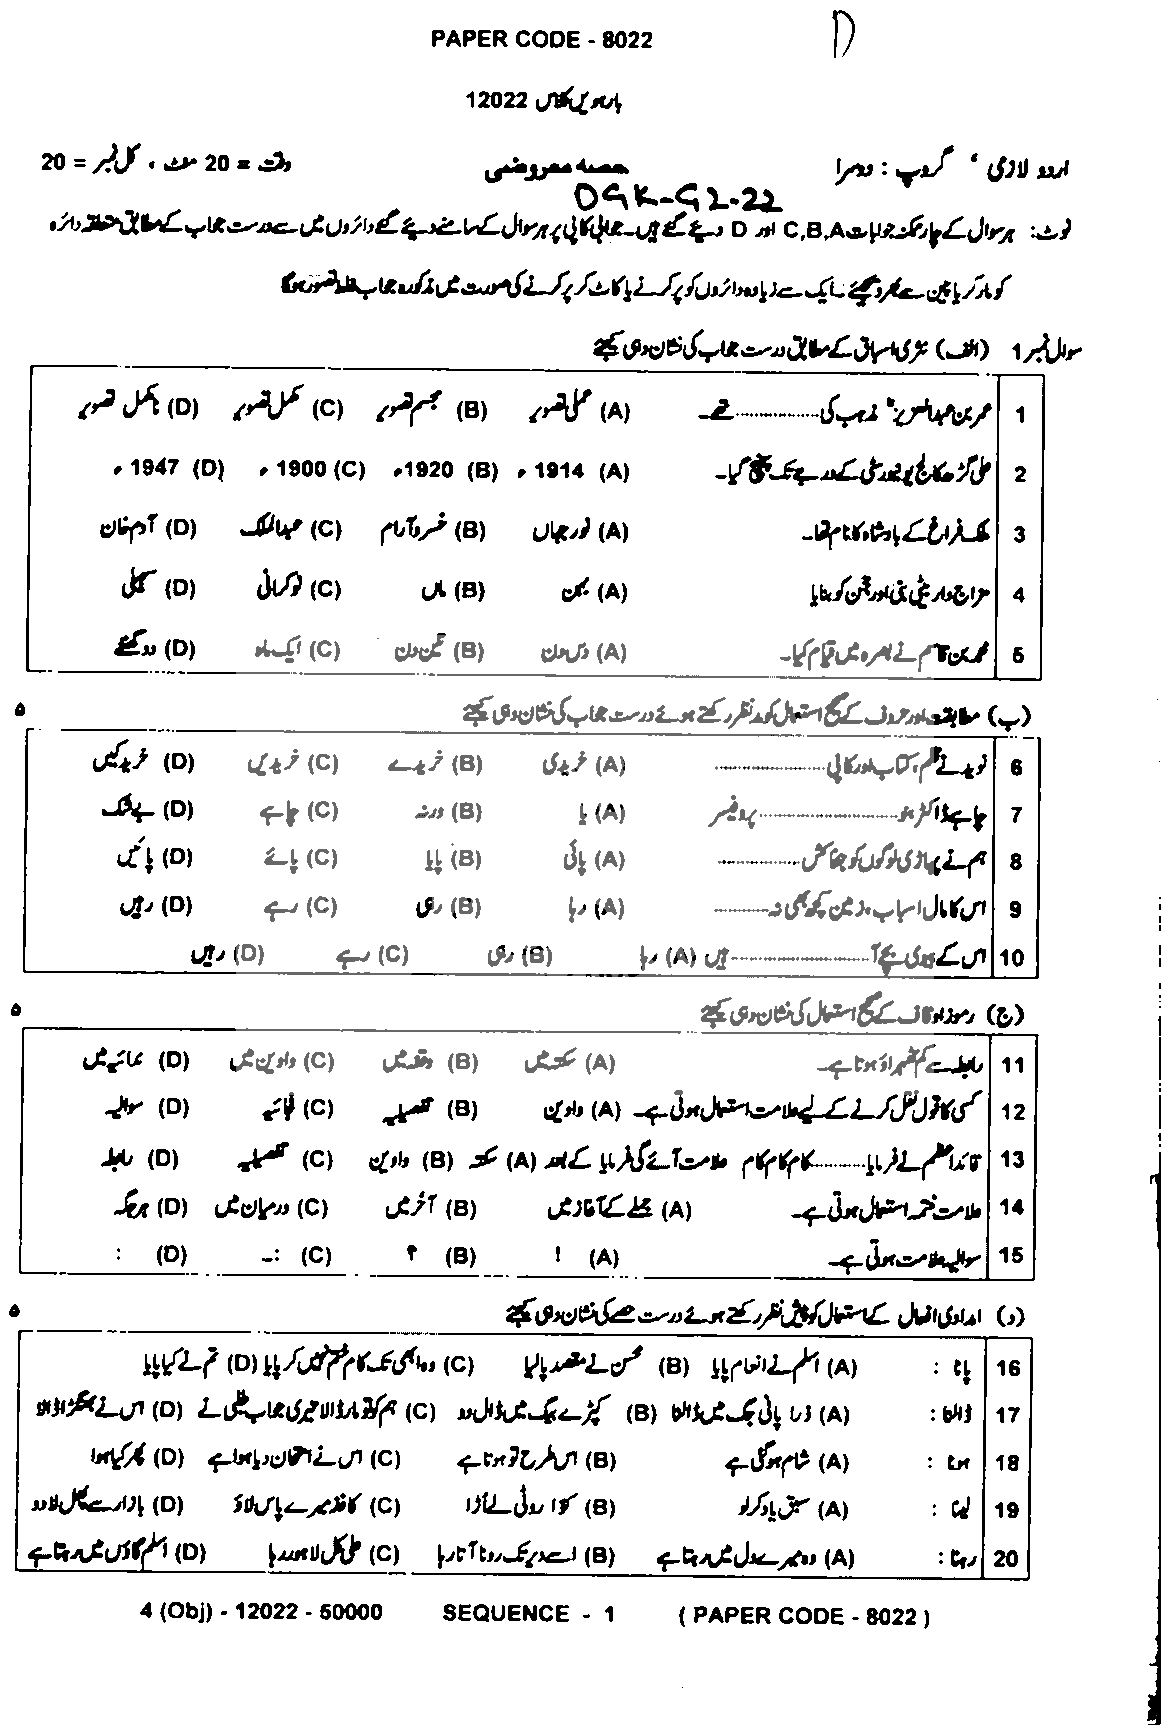 PAPER CODE - 8022
D
بارہویں کلاس 12022
اردو لازمی ، گروپ : دوسرا حصہ معروضی وقت = 20 منٹ ، کل نمبر = 20
DGK-G2-22
نوٹ: ہر سوال کے چار ممکنہ جوابات C,B,A اور D دیئے گئے ہیں۔ جوابی کاپی پر ہر سوال کے سامنے دیئے گئے دائروں میں سے درست جواب کے مطابق متعلقہ دائرہ
کو مارکر یا پین سے بھر دیجئے ۔ ایک سے زیادہ دائروں کو پر کرنے یا کاٹ کر پر کرنے کی صورت میں مذکورہ جواب غلط تصور ہوگا
سوال نمبر 1 (الف) نثری اسباق کے مطابق درست جواب کی نشان دہی کیجئے
1 عمر بن عبدالعزیزؒ مذہب کی .................. تھے۔ (A) عملی تصویر (B) مجسم تصویر (C) مکمل تصویر (D) نامکمل تصویر
2 علی گڑھ کالج یونیورسٹی کے درجے تک پہنچ گیا۔ (A) 1914ء (B) 1920ء (C) 1900ء (D) 1947ء
3 ملک فراغ کے بادشاہ کا نام تھا۔ (A) نور جہاں (B) خسرو آرام (C) عبدالملک (D) آدم خان
4 مزاج دار بیٹی بنی اور جمن کو بنایا (A) بہن (B) ماں (C) نوکرانی (D) سہیلی
5 محمد بن قاسم نے بصرہ میں قیام کیا۔ (A) دس دن (B) تین دن (C) ایک ماہ (D) دو گھنٹے
(ب) مطابقت اور حروف کے صحیح استعمال کو مدنظر رکھتے ہوئے درست جواب کی نشان دہی کیجئے ۵
6 نوید نے قلم، کتاب اور کاپی .................. (A) خریدی (B) خریدے (C) خریدیں (D) خرید کیں
7 چاہے ڈاکٹر ہو .................. پروفیسر (A) یا (B) ورنہ (C) چاہے (D) بے شک
8 ہم نے پہاڑی لوگوں کو جفاکش .................. (A) پائی (B) پایا (C) پائے (D) پائیں
9 اس کا مال اسباب، زمین کچھ بھی نہ .................. (A) رہا (B) رہی (C) رہے (D) رہیں
10 اس کے بیوی بچے آ .................. ہیں (A) رہا (B) رہی (C) رہے (D) رہیں
(ج) رموز اوقاف کے صحیح استعمال کی نشان دہی کیجئے ۵
11 رابطہ سے کم ٹھہراؤ ہوتا ہے۔ (A) سکتہ میں (B) وقفہ میں (C) واوین میں (D) ندائیہ میں
12 کسی کا قول نقل کرنے کے لیے علامت استعمال ہوتی ہے۔ (A) واوین (B) تفصیلیہ (C) فجائیہ (D) سوالیہ
13 قائداعظم نے فرمایا .......... کام کام کام علامت آئے گی فرمایا کے بعد (A) سکتہ (B) واوین (C) تفصیلیہ (D) رابطہ
14 علامت ختمہ استعمال ہوتی ہے۔ (A) جملے کے آغاز میں (B) آخر میں (C) درمیان میں (D) ہر جگہ
15 سوالیہ علامت ہوتی ہے۔ (A) ! (B) ؟ (C) :۔ (D) :
(د) امدادی افعال کے استعمال کو پیش نظر رکھتے ہوئے درست جملے کی نشان دہی کیجئے ۵
16 پانا : (A) اسلم نے انعام پایا (B) محسن نے مقصد پا لیا (C) وہ ابھی تک کام ختم نہیں کر پایا (D) تم نے کیا پایا
17 ڈالنا : (A) ذرا پانی جگ میں ڈالنا (B) کپڑے بیگ میں ڈال دو (C) ہم کو تو مار ڈالا تیری جواب طلبی نے (D) اس نے بھنگڑا ڈالا
18 ہونا : (A) شام ہو گئی ہے (B) اس طرح تو ہوتا ہے (C) اس نے امتحان دیا ہوا ہے (D) پھر کیا ہوا
19 لینا : (A) سبق یاد کر لو (B) کوا روٹی لے اڑا (C) کاغذ میرے پاس لاؤ (D) بازار سے پھل لا دو
20 رہنا : (A) وہ میرے دل میں رہتا ہے (B) اسے دیر تک رونا آتا رہا (C) علی کل لاہور رہا (D) اسلم گاؤں میں رہتا ہے
4 (Obj) - 12022 - 50000 SEQUENCE - 1 ( PAPER CODE - 8022 )